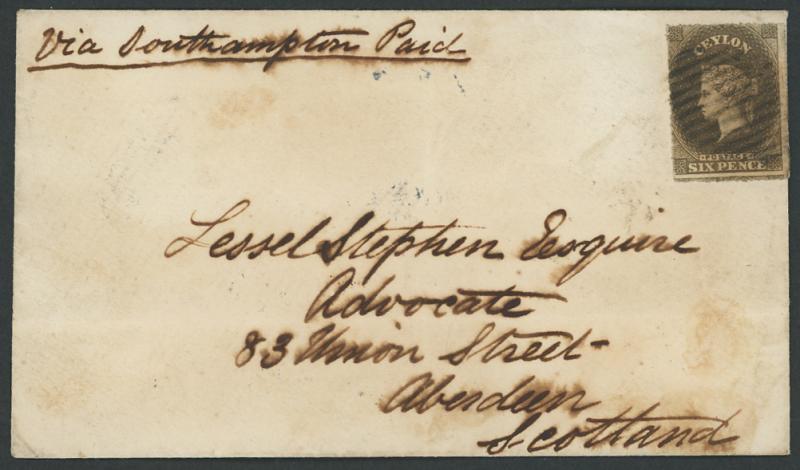 Via Southampton Paid
CEYLON
POSTAGE
SIX PENCE
Lessel Stephen Esquire
Advocate
83 Union Street
Aberdeen
Scotland